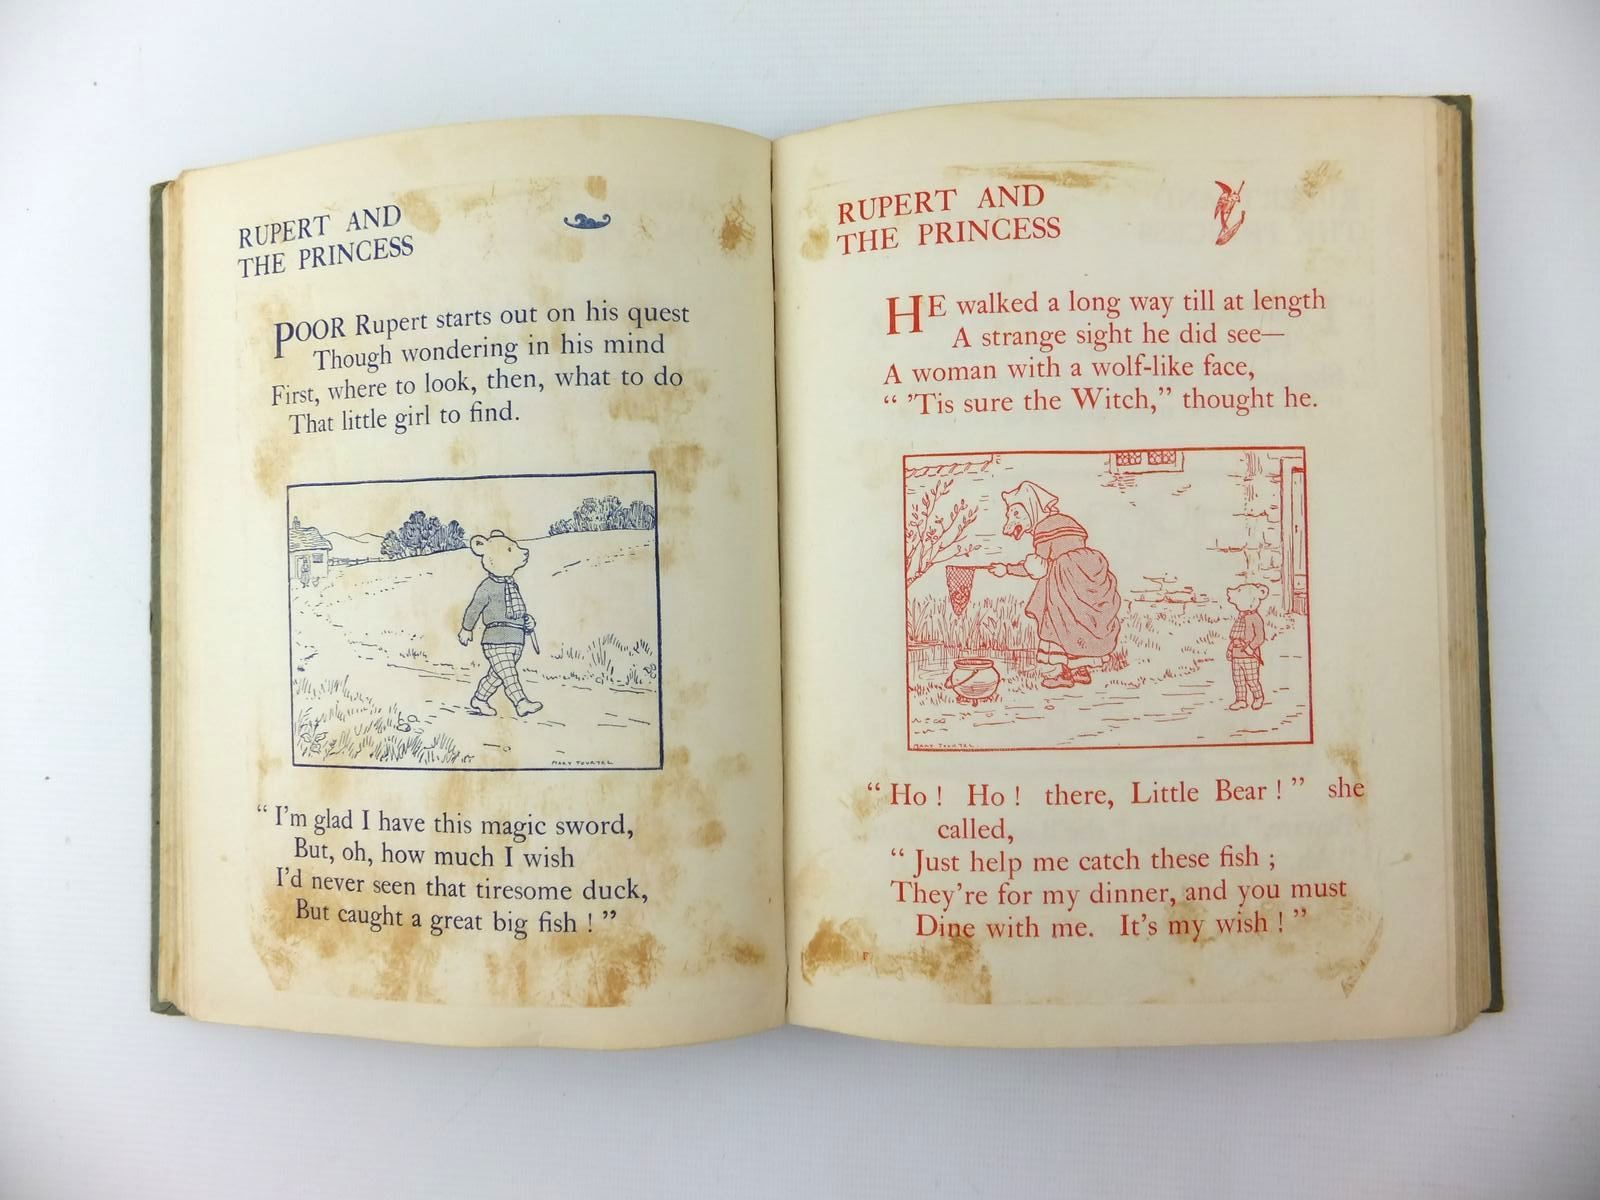 RUPERT AND
THE PRINCESS
POOR Rupert starts out on his quest
Though wondering in his mind
First, where to look, then, what to do
That little girl to find.
MARY TOURTEL
“ I’m glad I have this magic sword,
But, oh, how much I wish
I’d never seen that tiresome duck,
But caught a great big fish ! ”
RUPERT AND
THE PRINCESS
HE walked a long way till at length
A strange sight he did see—
A woman with a wolf-like face,
“ ’Tis sure the Witch,” thought he.
MARY TOURTEL
“ Ho ! Ho ! there, Little Bear ! ” she
called,
“ Just help me catch these fish ;
They’re for my dinner, and you must
Dine with me. It’s my wish ! ”